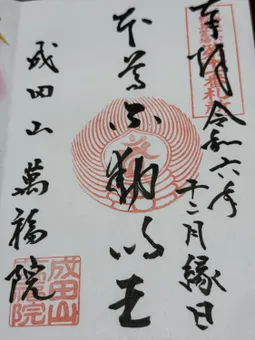 奉拝 令和六年
十二月縁日
本尊不動明王
成田山 萬福院
成田山
萬福院